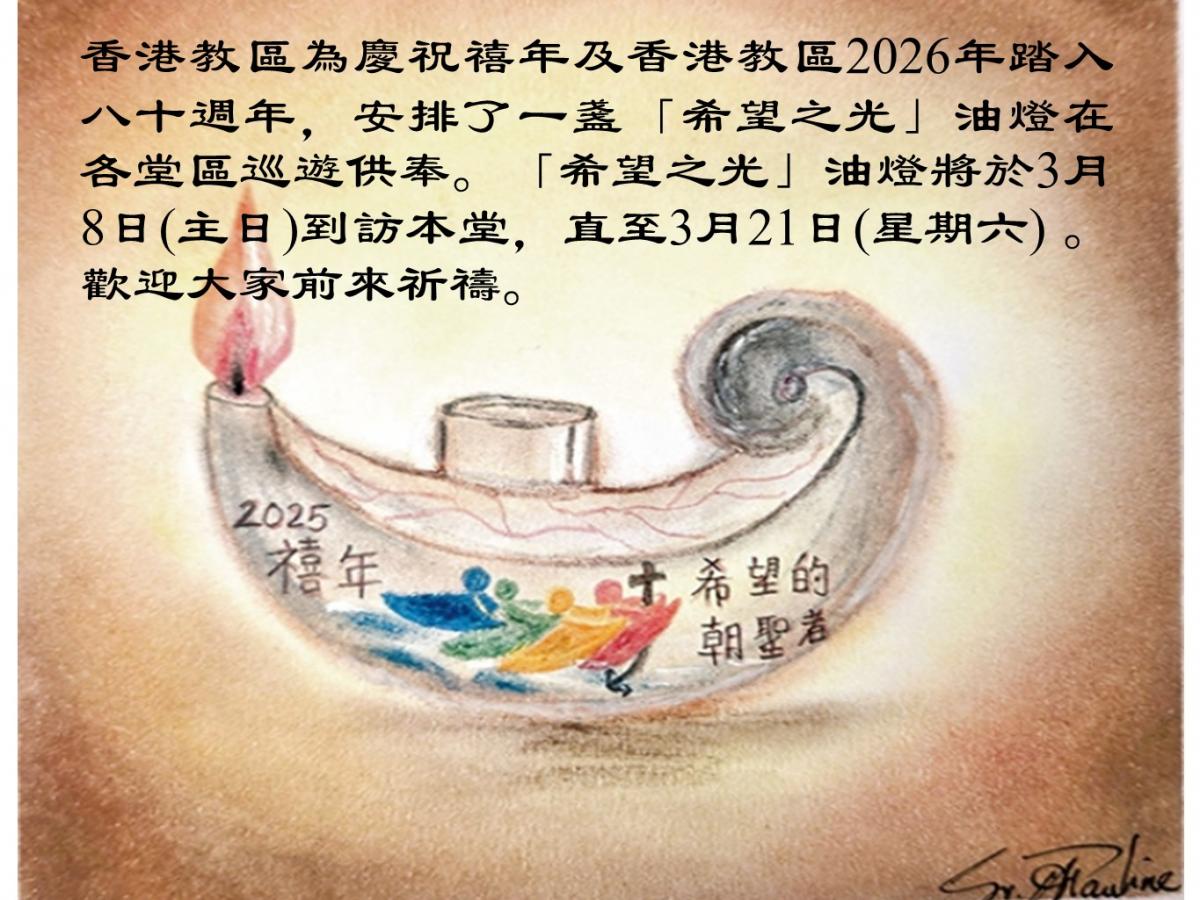 香港教區為慶祝禧年及香港教區2026年踏入
八十週年，安排了一盞「希望之光」油燈在
各堂區巡遊供奉。「希望之光」油燈將於3月
8日(主日)到訪本堂，直至3月21日(星期六) 。
歡迎大家前來祈禱。
2025
禧年
希望的
朝聖者
Sr. Pauline